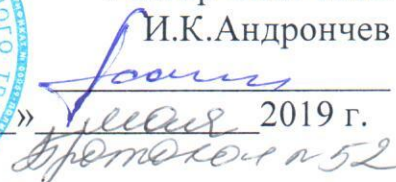 И.К.Андрончев
» мая 2019 г.
Протокол № 52